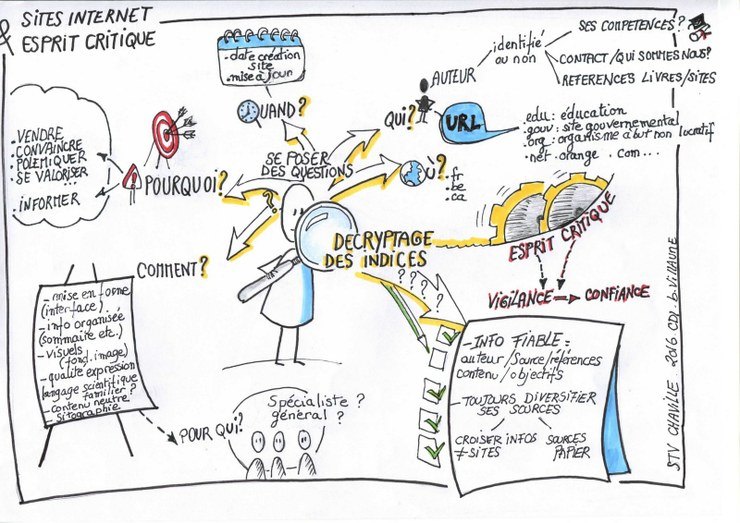 SITES INTERNET
& ESPRIT CRITIQUE
.date création
site
.mise à jour
QUAND?
AUTEUR
identifié
ou non
SES COMPETENCES?
CONTACT/QUI SOMMES NOUS?
REFERENCES LIVRES/SITES
QUI?
URL
.edu: éducation
.gouv: site gouvernemental
.org: organisme à but non lucratif
.net .orange .com...
OÙ?
.fr
.be
.ca
SE POSER
DES QUESTIONS
.VENDRE
CONVAINCRE
POLEMIQUER
.SE VALORISER...
.INFORMER
!
POURQUOI?
?
COMMENT?
DECRYPTAGE
DES INDICES
ESPRIT CRITIQUE
VIGILANCE
CONFIANCE
? ? ? ?
- mise en forme
(interface)
- info organisée
(sommaire etc.)
- visuels
(fond, image)
- qualité expression
langage scientifique
familier?
- contenu neutre
- sitographie
POUR QUI?
Spécialiste?
général?
- INFO FIABLE =
auteur/source/références
contenu/objectifs
- TOUJOURS DIVERSIFIER
SES SOURCES
CROISER INFOS
≠ SITES
SOURCES
PAPIER
STV CHAVILLE 2016 CDI b.Villaume